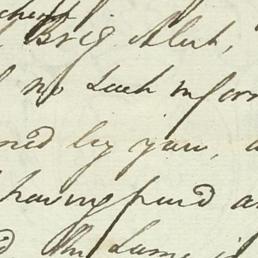 Brig Alert,
no such inform
ned by you, a
having paid a
the same is